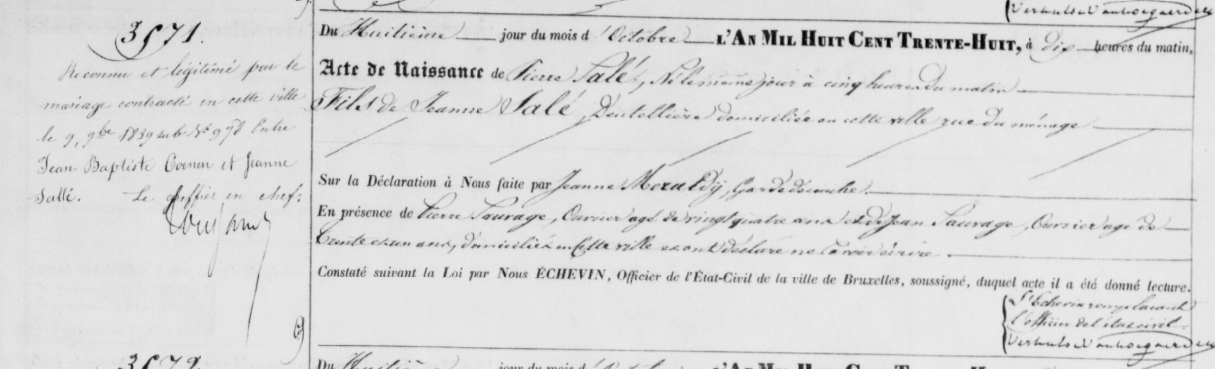 3571.
Reconnu et légitimé par le
mariage contracté en cette ville
le 9, 9bre 1839 sub No 978 Entre
Jean Baptiste et Jeanne
Sallé. Le Greffier en chef.
Du Huitième jour du mois d'Octobre L'AN MIL HUIT CENT TRENTE-HUIT, à Dix heures du matin,
Acte de Naissance de Pierre Salé, Né le même jour à cinq heures du matin
Fils de Jeanne Salé, Dentellière domiciliée en cette ville rue du ménage
Sur la Déclaration à Nous faite par Jeanne, Garde couche
En présence de Pierre Sauvage, Ouvrier agé de vingt quatre ans et de Jean Sauvage, Ouvrier age de
Trente et un ans, domiciliés en Cette ville et ont déclaré ne savoir écrire.
Constaté suivant la Loi par Nous ÉCHEVIN, Officier de l'État-Civil de la ville de Bruxelles, soussigné, duquel acte il a été donné lecture.
l'officier de l'état civil
3572.
Du Huitième jour du mois d' L'AN MIL HUIT CENT TRENTE-H